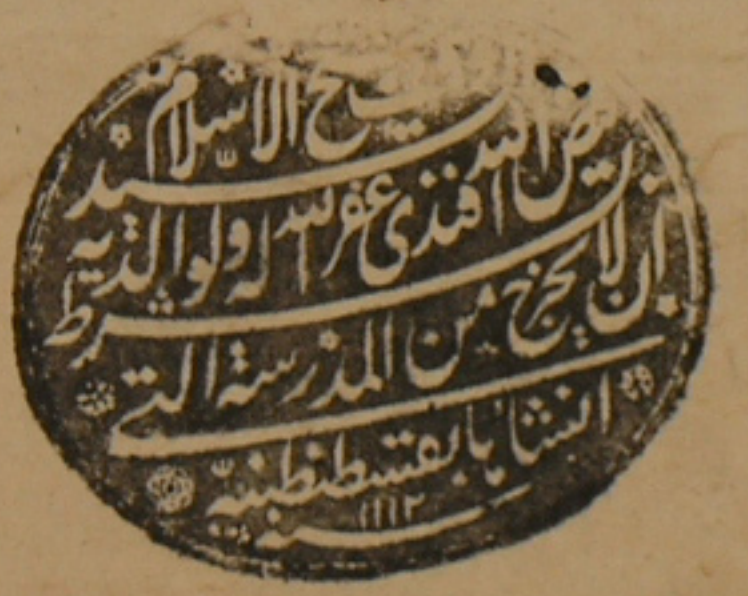 شيخ الاسلام السيد
فيض الله افندى غفر الله له ولوالديه
بشرط ان لا يخرج من المدرسة التى
انشاها بقسطنطنية
سنة ١١١٢